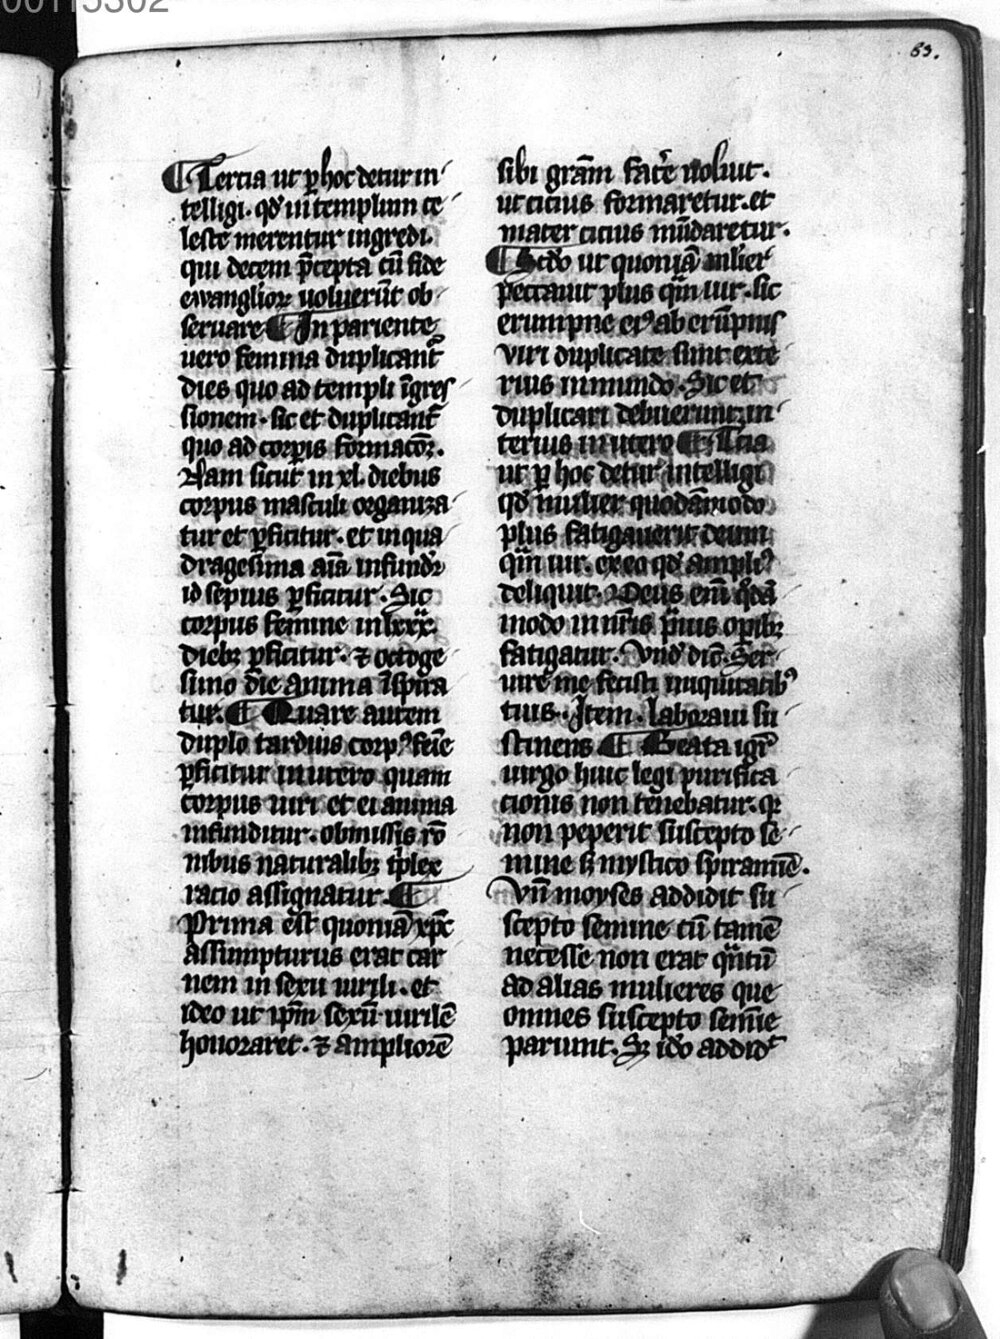 00115302
63.
¶ Tercia ut ꝑ hoc detur in
telligi. qď in templum ce
leste merentur ingredi.
qui decem p̄cepta cū fide
ewangliorꝝ uoluerūt ob
seruare ¶ In pariente
uero femina duplicant᷑
dies quo ad templi īgres
sionem. sic et duplicant᷑
quo ad corꝑis formacōꝫ.
Nam sicut in xl. diebus
corpus masculi organiza
tur et ꝑficitur. et in qua
dragesima aīa infundr̄
id sepius ꝑficitur. Sic
corpus femine in lxxx.
diebꝫ ꝑficitur. ⁊ octoge
simo die anima īspira
tur. ¶ Quare autem
duplo tardius corpꝰ femīe
ꝑficitur in utero quam
corpus uiri et ei anima
infunditur. obmissis rō
nibus naturalibꝫ tⁱplex
racio assignatur. ¶
Prima est quoniā xp̄c
assumpturus erat car
nem in sexu uirili. et
ideo ut ip̄m sexū uirilē
honoraret. ⁊ ampliorē
sibi grām facēe uoluit.
ut cicius formaretur. et
mater cicius mūdaretur.
¶ Scďo ut quoniā mlier
peccauit plus qm̄ uir. sic
erumpne eiꝰ ab erūpnis
viri duplicate sunt exte
rius in mundo. Sic et
duplicari debuerunt in
terius in utero ¶ Tcia
ut ꝑ hoc detur intelligi
qď mulier quodāmodo
plus fatigauerit deum
qm̄ uir. ex eo qď ampliꝰ
deliquit. Deus enī qͦdā
modo in nr̄is p̄uis oꝑibꝫ
fatigatur. Vnď dic̄. Ser
uire me fecisti iniquitatibꝰ
tuis. Item. laboraui su
stinens ¶ Beata igr̄
uirgo huic legi purifica
cionis non tenebatur. qꝛ
non peperit suscepto se
mine sꝫ mystico spiramīe.
Vn̄ moyses addidit su
scepto semine cū tamē
necesse non erat qn̄tū
ad alias mulieres que
omnes suscepto semīe
pariunt. Sꝫ iďo addiď